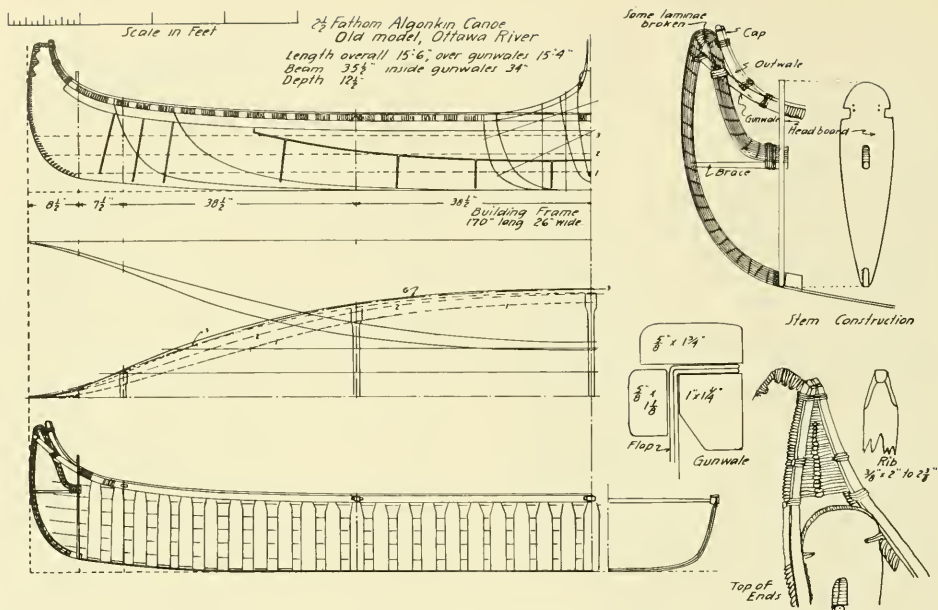 Scale in Feet
2½ Fathom Algonkin Canoe
Old model, Ottawa River
Length overall 15'6", over gunwales 15'4"
Beam 35½" inside gunwales 34"
Depth 12½"
3
2
1
8½"
7½"
38½"
38½"
Building Frame
170" long 26" wide
G
3
3
2
1
2
1
Some laminae
broken
Cap
Outwale
Gunwale
Headboard
Brace
Stem Construction
⅝" x 1¾"
⅝" x
1⅛
1" x 1¼"
Flap
Gunwale
Rib
⅜" x 2" to 2⅜"
Top of
Ends